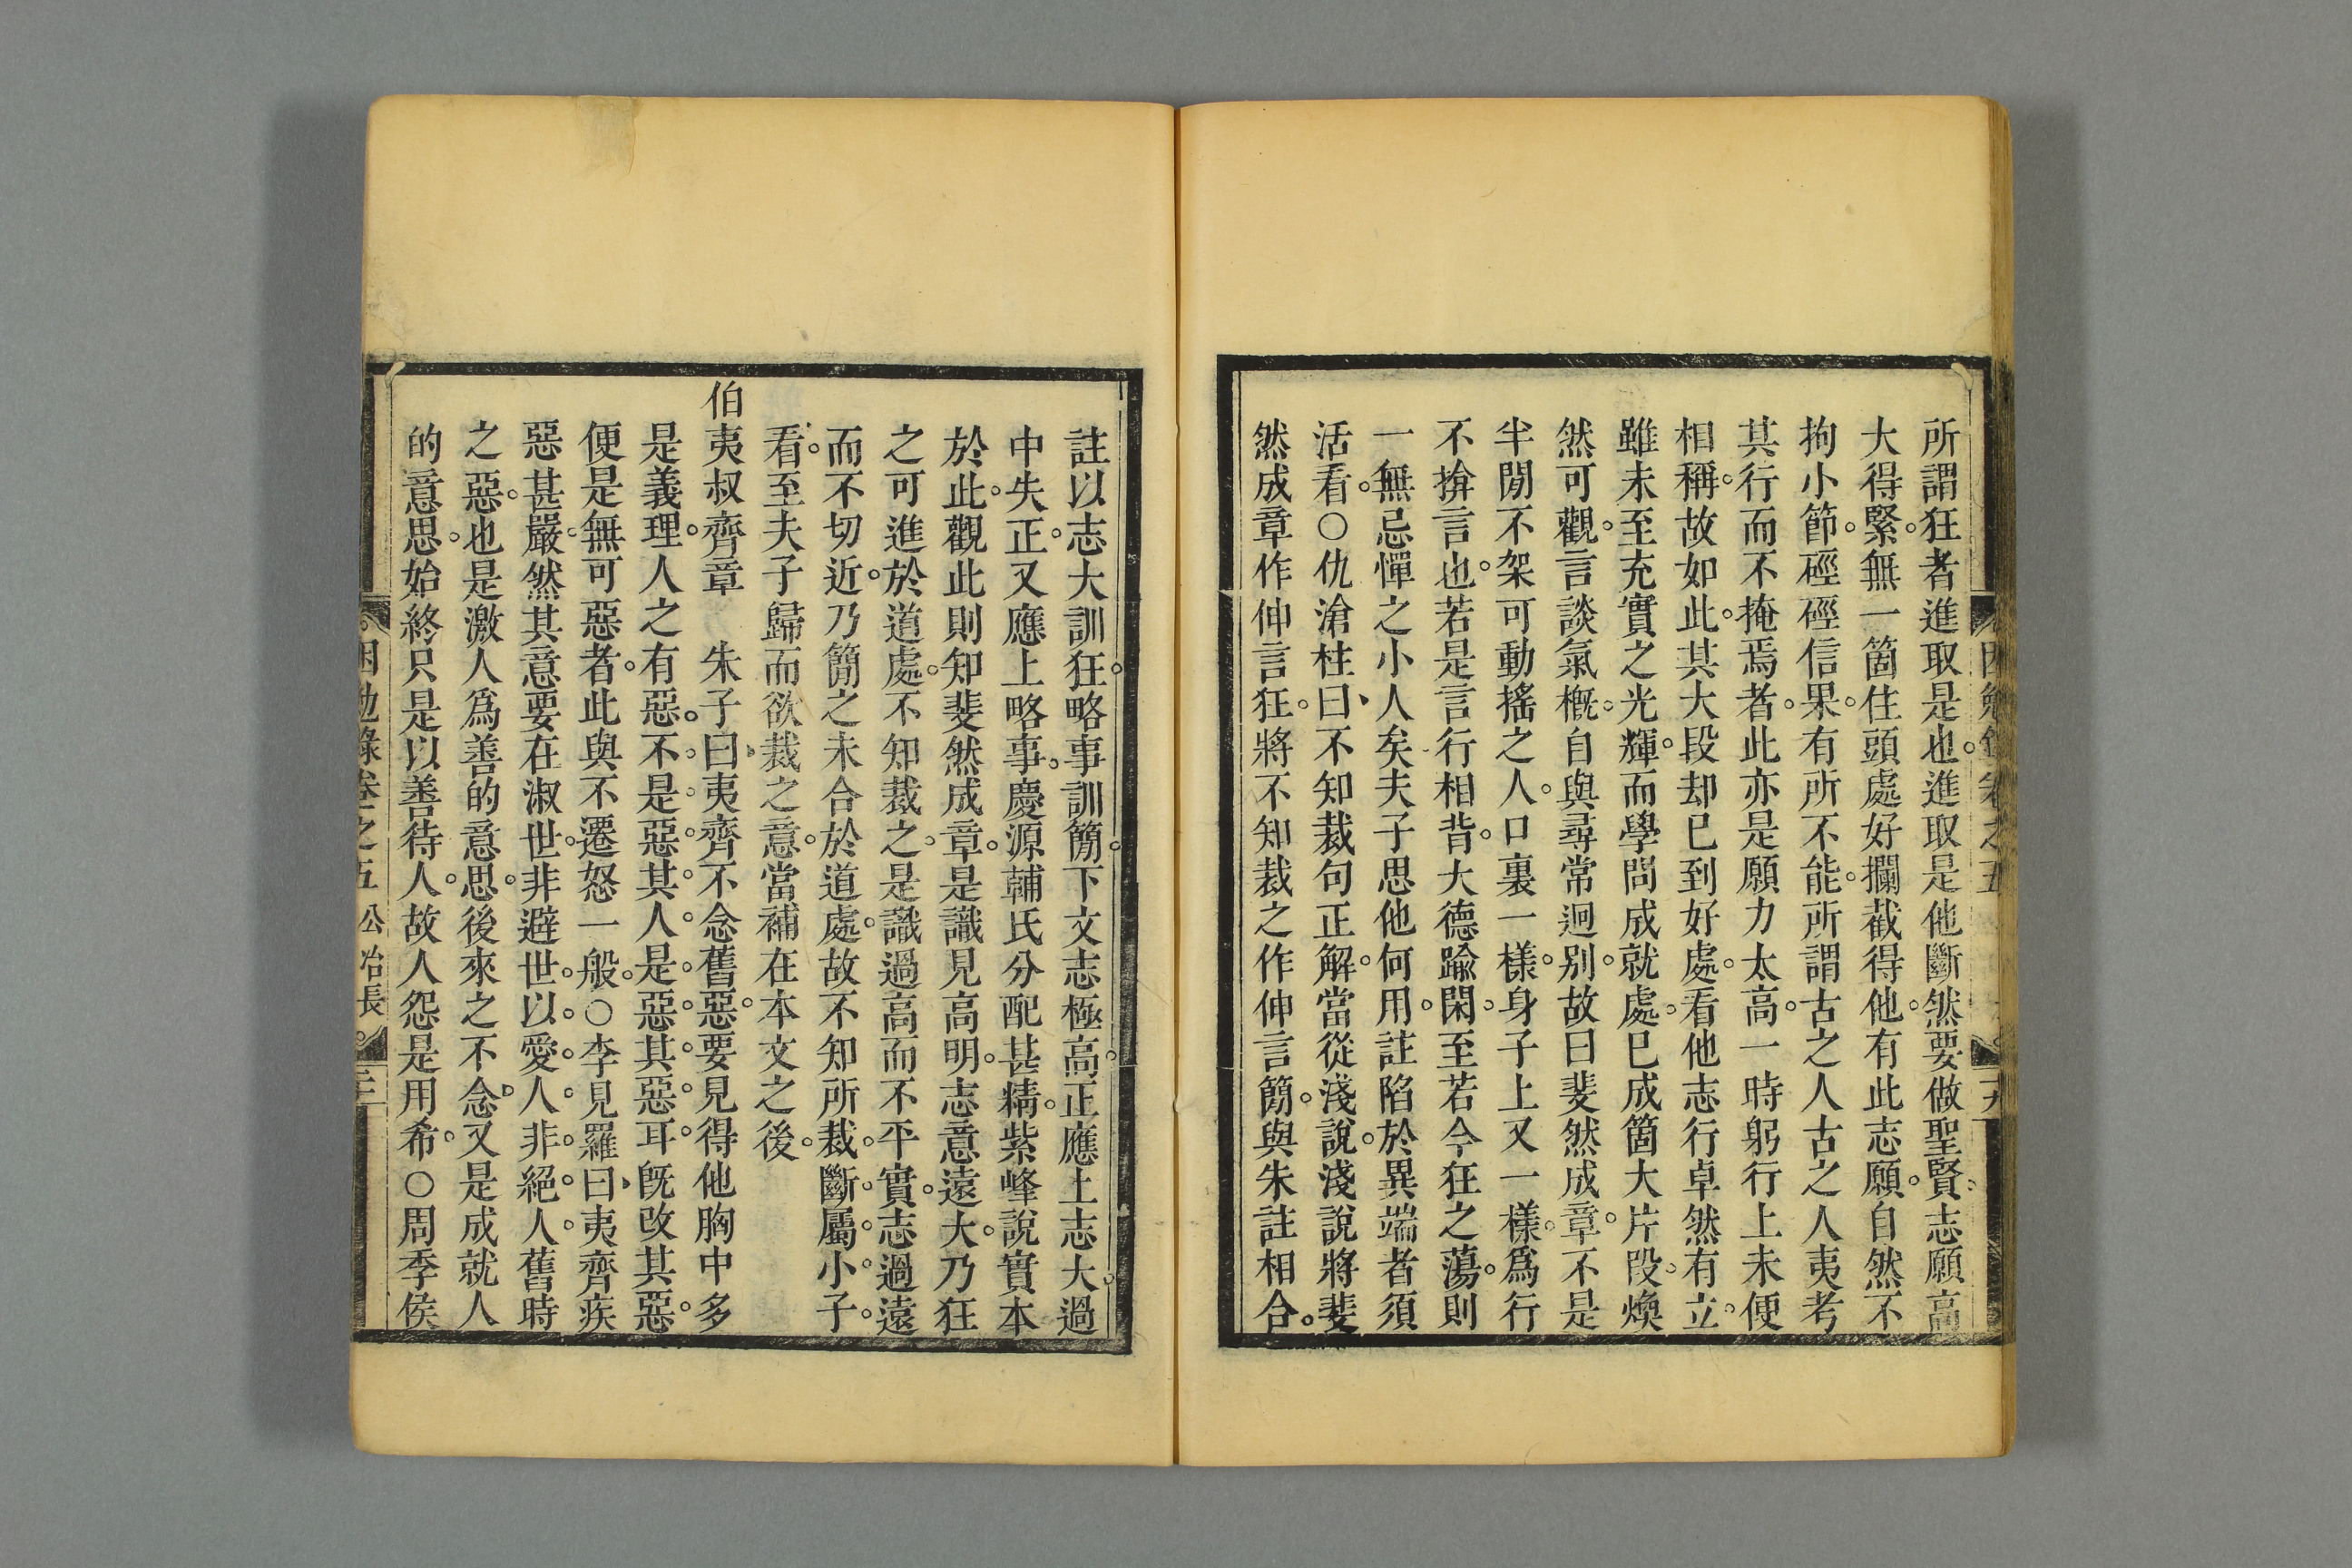 所謂狂者進取是也進取是他斷然要做聖賢志願高
大得緊無一箇住頭處好攔截得他有此志願自然不
拘小節硜硜信果有所不能所謂古之人古之人夷考
其行而不掩焉者此亦是願力太高一時躬行上未便
相稱故如此其大段却已到好處看他志行卓然有立
雖未至充實之光輝而學問成就處已成箇大片段煥
然可觀言談氣概自與尋常迥別故曰斐然成章不是
半閒不架可動搖之人口裏一樣身子上又一樣爲行
不揜言也若是言行相背大德踰閑至若今狂之蕩則
一無忌憚之小人矣夫子思他何用註陷於異端者須
活看○仇滄柱曰不知裁句正解當從淺說淺說將斐
然成章作伸言狂將不知裁之作伸言簡與朱註相合
註以志大訓狂略事訓簡下文志極高正應上志大過
中失正又應上略事慶源輔氏分配甚精紫峰說實本
於此觀此則知斐然成章是識見高明志意遠大乃狂
之可進於道處不知裁之是識過高而不平實志過遠
而不切近乃簡之未合於道處故不知所裁斷屬小子
看至夫子歸而欲裁之意當補在本文之後
伯夷叔齊章　朱子曰夷齊不念舊惡要見得他胸中多
是義理人之有惡不是惡其人是惡其惡耳旣改其惡
便是無可惡者此與不遷怒一般○李見羅曰夷齊疾
惡甚嚴然其意要在淑世非避世以愛人非絕人舊時
之惡也是激人爲善的意思後來之不念又是成就人
的意思始終只是以善待人故人怨是用希○周季侯
困勉錄卷之五 公冶長